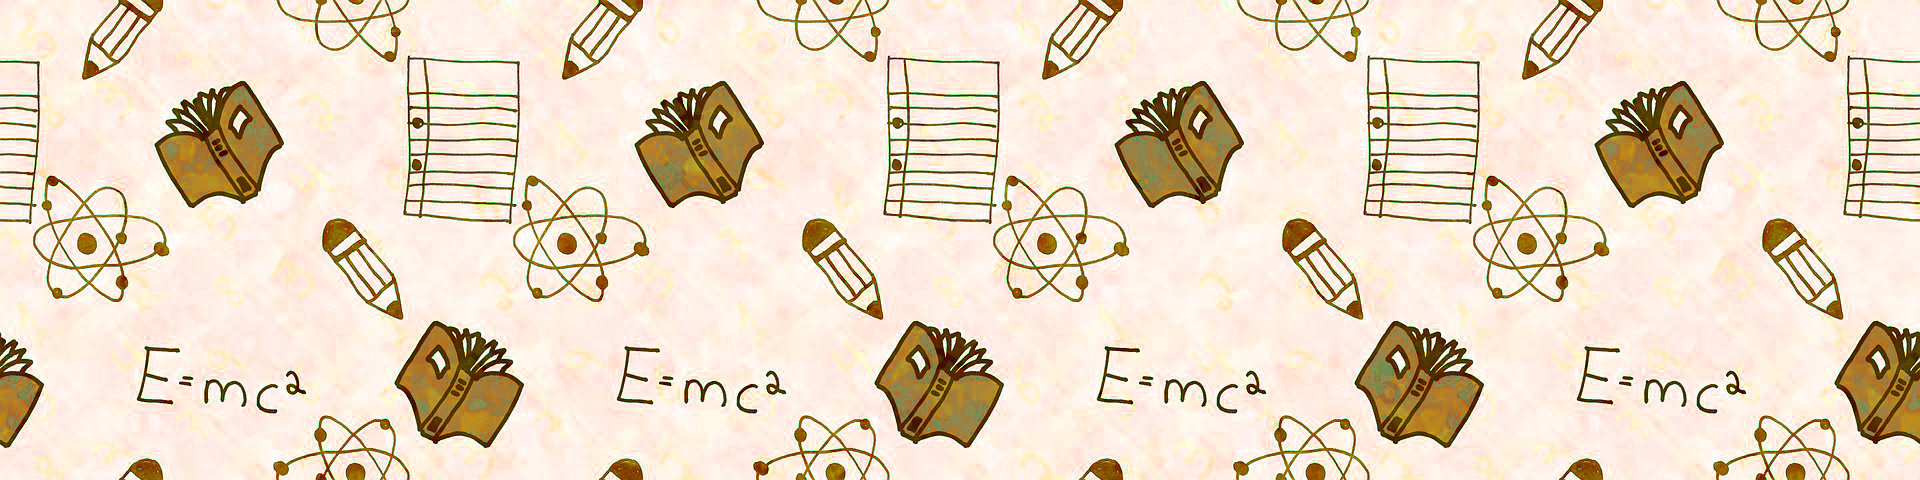 E=mc² E=mc² E=mc² E=mc²